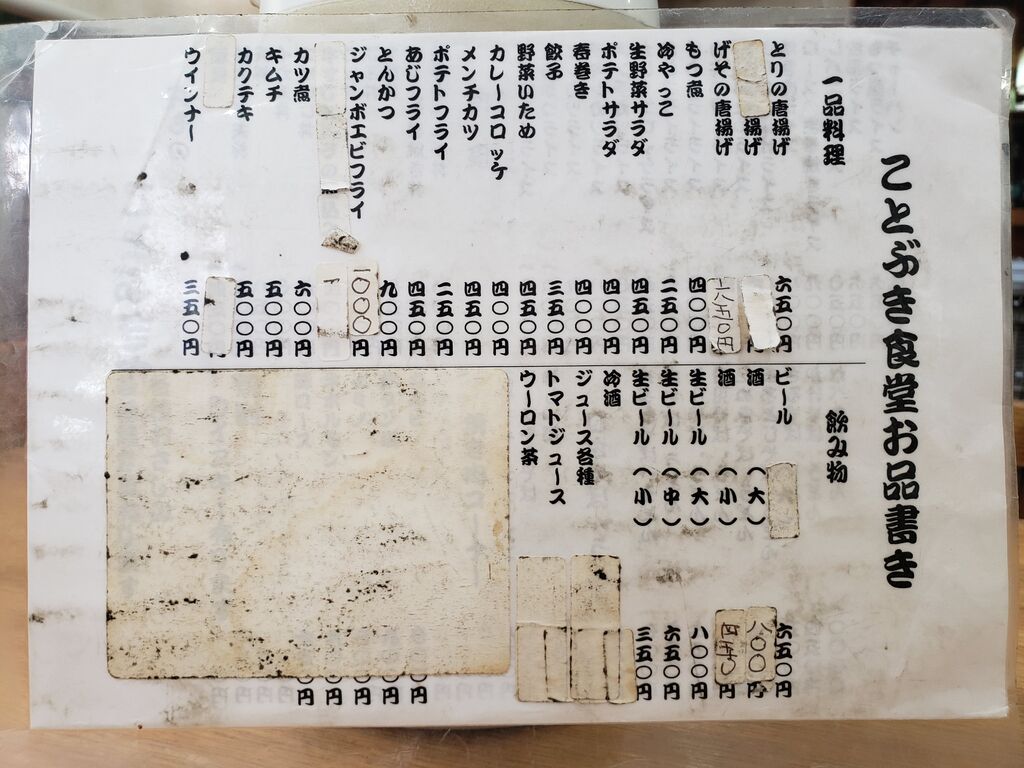 ことぶき食堂お品書き
一品料理
とりの唐揚げ 六五〇円
揚げ 円
げその唐揚げ
もつ煮 四〇〇円
冷やっこ 二五〇円
生野菜サラダ 四五〇円
ポテトサラダ 四〇〇円
春巻き 四〇〇円
餃子 三五〇円
野菜いため 四五〇円
カレーコロッケ 四〇〇円
メンチカツ 四五〇円
ポテトフライ 二五〇円
あじフライ 四五〇円
とんかつ 九〇〇円
ジャンボエビフライ 一〇〇〇円
カツ煮 六〇〇円
キムチ 五〇〇円
カクテキ 五〇〇円
ウインナー 三五〇円
飲み物
ビール 六五〇円
酒(大) 八〇〇円
酒(小) 四五〇円
生ビール(大) 八〇〇円
生ビール(中) 六五〇円
生ビール(小) 三五〇円
冷酒
ジュース各種
トマトジュース
ウーロン茶